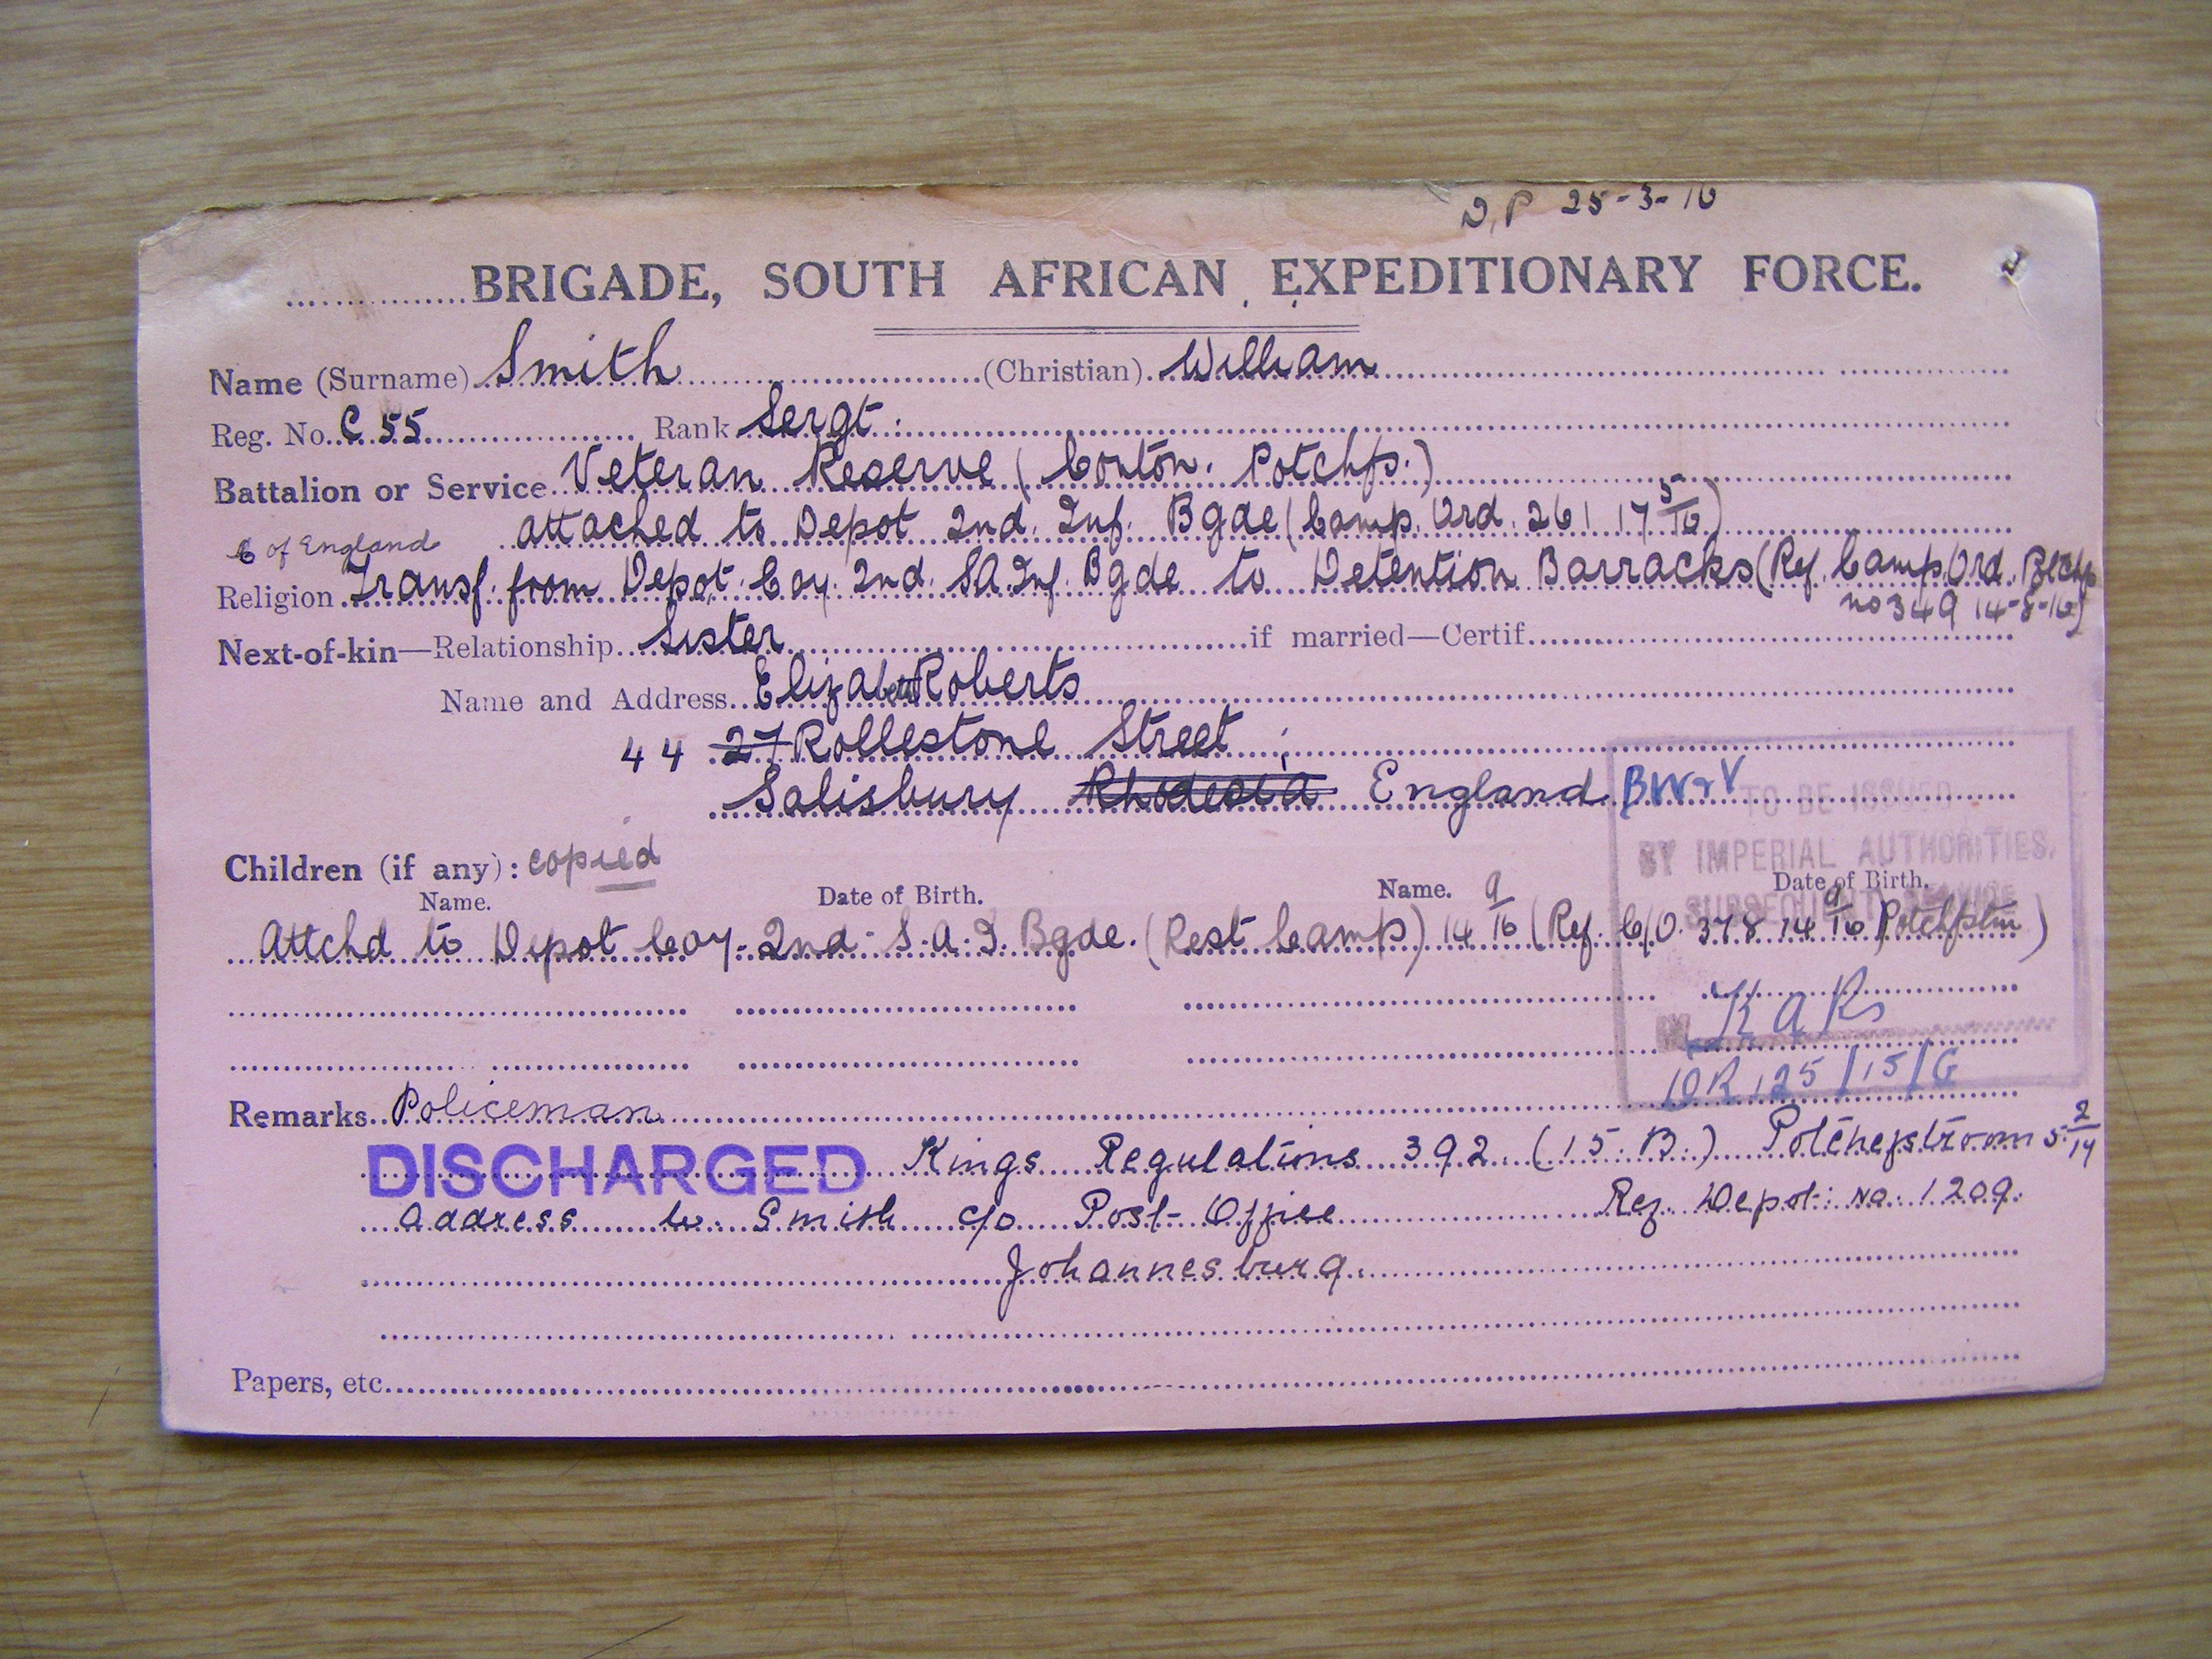 D.P 25-3-16
BRIGADE, SOUTH AFRICAN EXPEDITIONARY FORCE.
Name (Surname) Smith (Christian) William
Reg. No. C 55 Rank Sergt.
Battalion or Service Veteran Reserve ( Potchfs.)
attached to Depot 2nd. Inf. Bgde (Camp. Ord. 261 17 5/16)
C of England
Religion Transf. from Depot. Coy. 2nd. S.A. Inf. Bgde to Detention Barracks (Ref. Camp. Ord.
no 349 14-8-16)
Next-of-kin—Relationship Sister if married—Certif.
Name and Address Elizabeth Roberts
44 27 Rollestone Street
Salisbury Rhodesia England BW & V
TO BE ISSUED
BY IMPERIAL AUTHORITIES.
SUBSEQUENT SERVICE
Children (if any): copied
Name. Date of Birth. Name. Date of Birth.
Attchd to Depot Coy. 2nd S.A.I. Bgde. (Rest Camp) 14 9/16 (Ref. C/O. 378 14 9/16 Potchfstm)
K A Rs
OR 125/15/G
Remarks Policeman
DISCHARGED Kings Regulations 392 (15. B.) Potchefstroom 5 2/17
Address W. Smith c/o Post Office Ref. Depot: No. 1209.
Johannesburg.
Papers, etc.